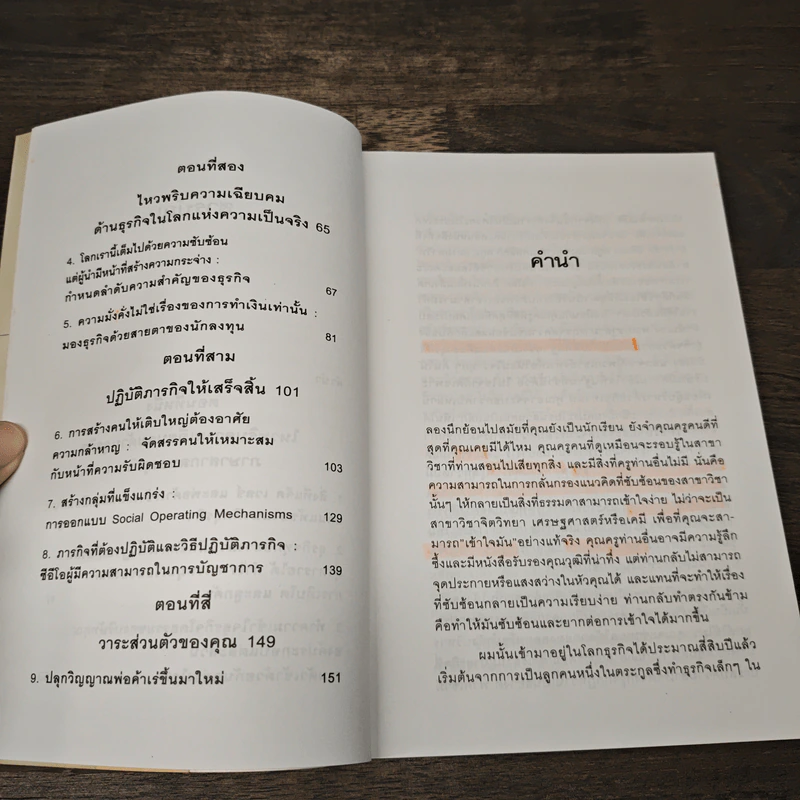 ตอนที่สอง
ไหวพริบความเฉียบคม
ด้านธุรกิจในโลกแห่งความเป็นจริง 65
4. โลกเรานี้เต็มไปด้วยความซับซ้อน
แต่ผู้นำมีหน้าที่สร้างความกระจ่าง :
กำหนดลำดับความสำคัญของธุรกิจ 67
5. ความมั่งคั่งไม่ใช่เรื่องของการทำเงินเท่านั้น :
มองธุรกิจด้วยสายตาของนักลงทุน 81
ตอนที่สาม
ปฏิบัติภารกิจให้เสร็จสิ้น 101
6. การสร้างคนให้เติบใหญ่ต้องอาศัย
ความกล้าหาญ : จัดสรรคนให้เหมาะสม
กับหน้าที่ความรับผิดชอบ 103
7. สร้างกลุ่มที่แข็งแกร่ง :
การออกแบบ Social Operating Mechanisms 129
8. ภารกิจที่ต้องปฏิบัติและวิธีปฏิบัติภารกิจ :
ซีอีโอผู้มีความสามารถในการบัญชาการ 139
ตอนที่สี่
วาระส่วนตัวของคุณ 149
9. ปลุกวิญญาณพ่อค้าเร่ขึ้นมาใหม่ 151
คำนำ
ลองนึกย้อนไปสมัยที่คุณยังเป็นนักเรียน ยังจำคุณครูคนดีที่
สุดที่คุณเคยมีได้ไหม คุณครูคนที่ดูเหมือนจะรอบรู้ในสาขา
วิชาที่ท่านสอนไปเสียทุกสิ่ง และมีสิ่งที่ครูท่านอื่นไม่มี นั่นคือ
ความสามารถในการกลั่นกรองแนวคิดที่ซับซ้อนของสาขาวิชา
นั้นๆ ให้กลายเป็นสิ่งที่ธรรมดาสามารถเข้าใจง่าย ไม่ว่าจะเป็น
สาขาวิชาจิตวิทยา เศรษฐศาสตร์หรือเคมี เพื่อที่คุณจะสา-
มารถ"เข้าใจมัน"อย่างแท้จริง คุณครูท่านอื่นอาจมีความรู้ลึก
ซึ้งและมีหนังสือรับรองคุณวุฒิที่น่าทึ่ง แต่ท่านกลับไม่สามารถ
จุดประกายหรือแสงสว่างในหัวคุณได้ และแทนที่จะทำให้เรื่อง
ที่ซับซ้อนกลายเป็นความเรียบง่าย ท่านกลับทำตรงกันข้าม
คือทำให้มันซับซ้อนและยากต่อการเข้าใจได้มากขึ้น
ผมนั้นเข้ามาอยู่ในโลกธุรกิจได้ประมาณสี่สิบปีแล้ว
เริ่มต้นจากการเป็นลูกคนหนึ่งในตระกูลซึ่งทำธุรกิจเล็กๆ ใน